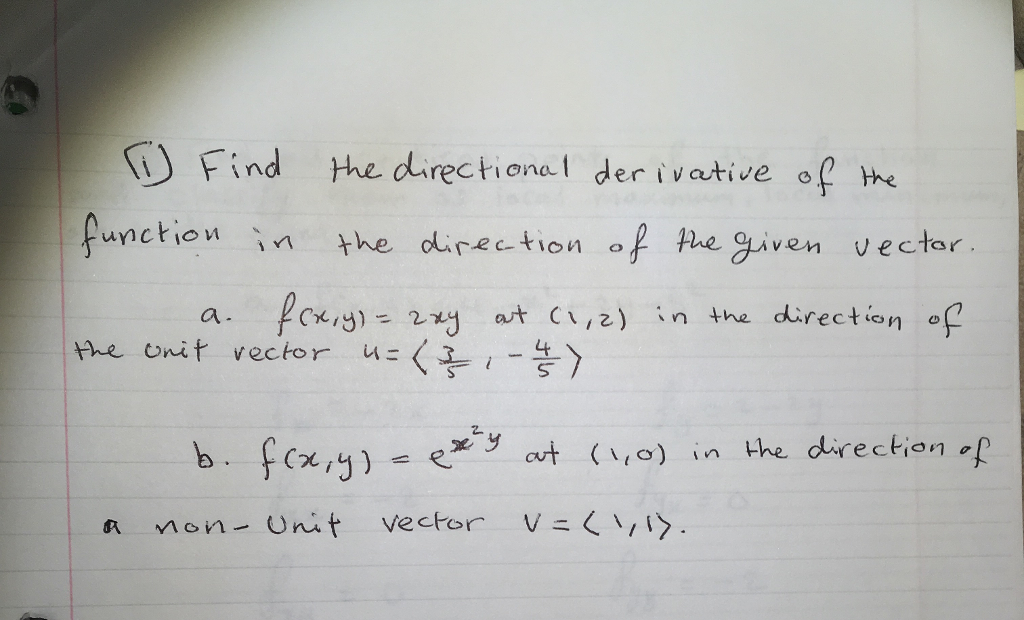 (i) Find the directional derivative of the
function in the direction of the given vector.
a. f(x,y) = 2xy at (1,2) in the direction of
the unit vector u = ⟨3/5, -4/5⟩
b. f(x,y) = e^{x²y} at (1,0) in the direction of
a non-unit vector v = ⟨1,1⟩.